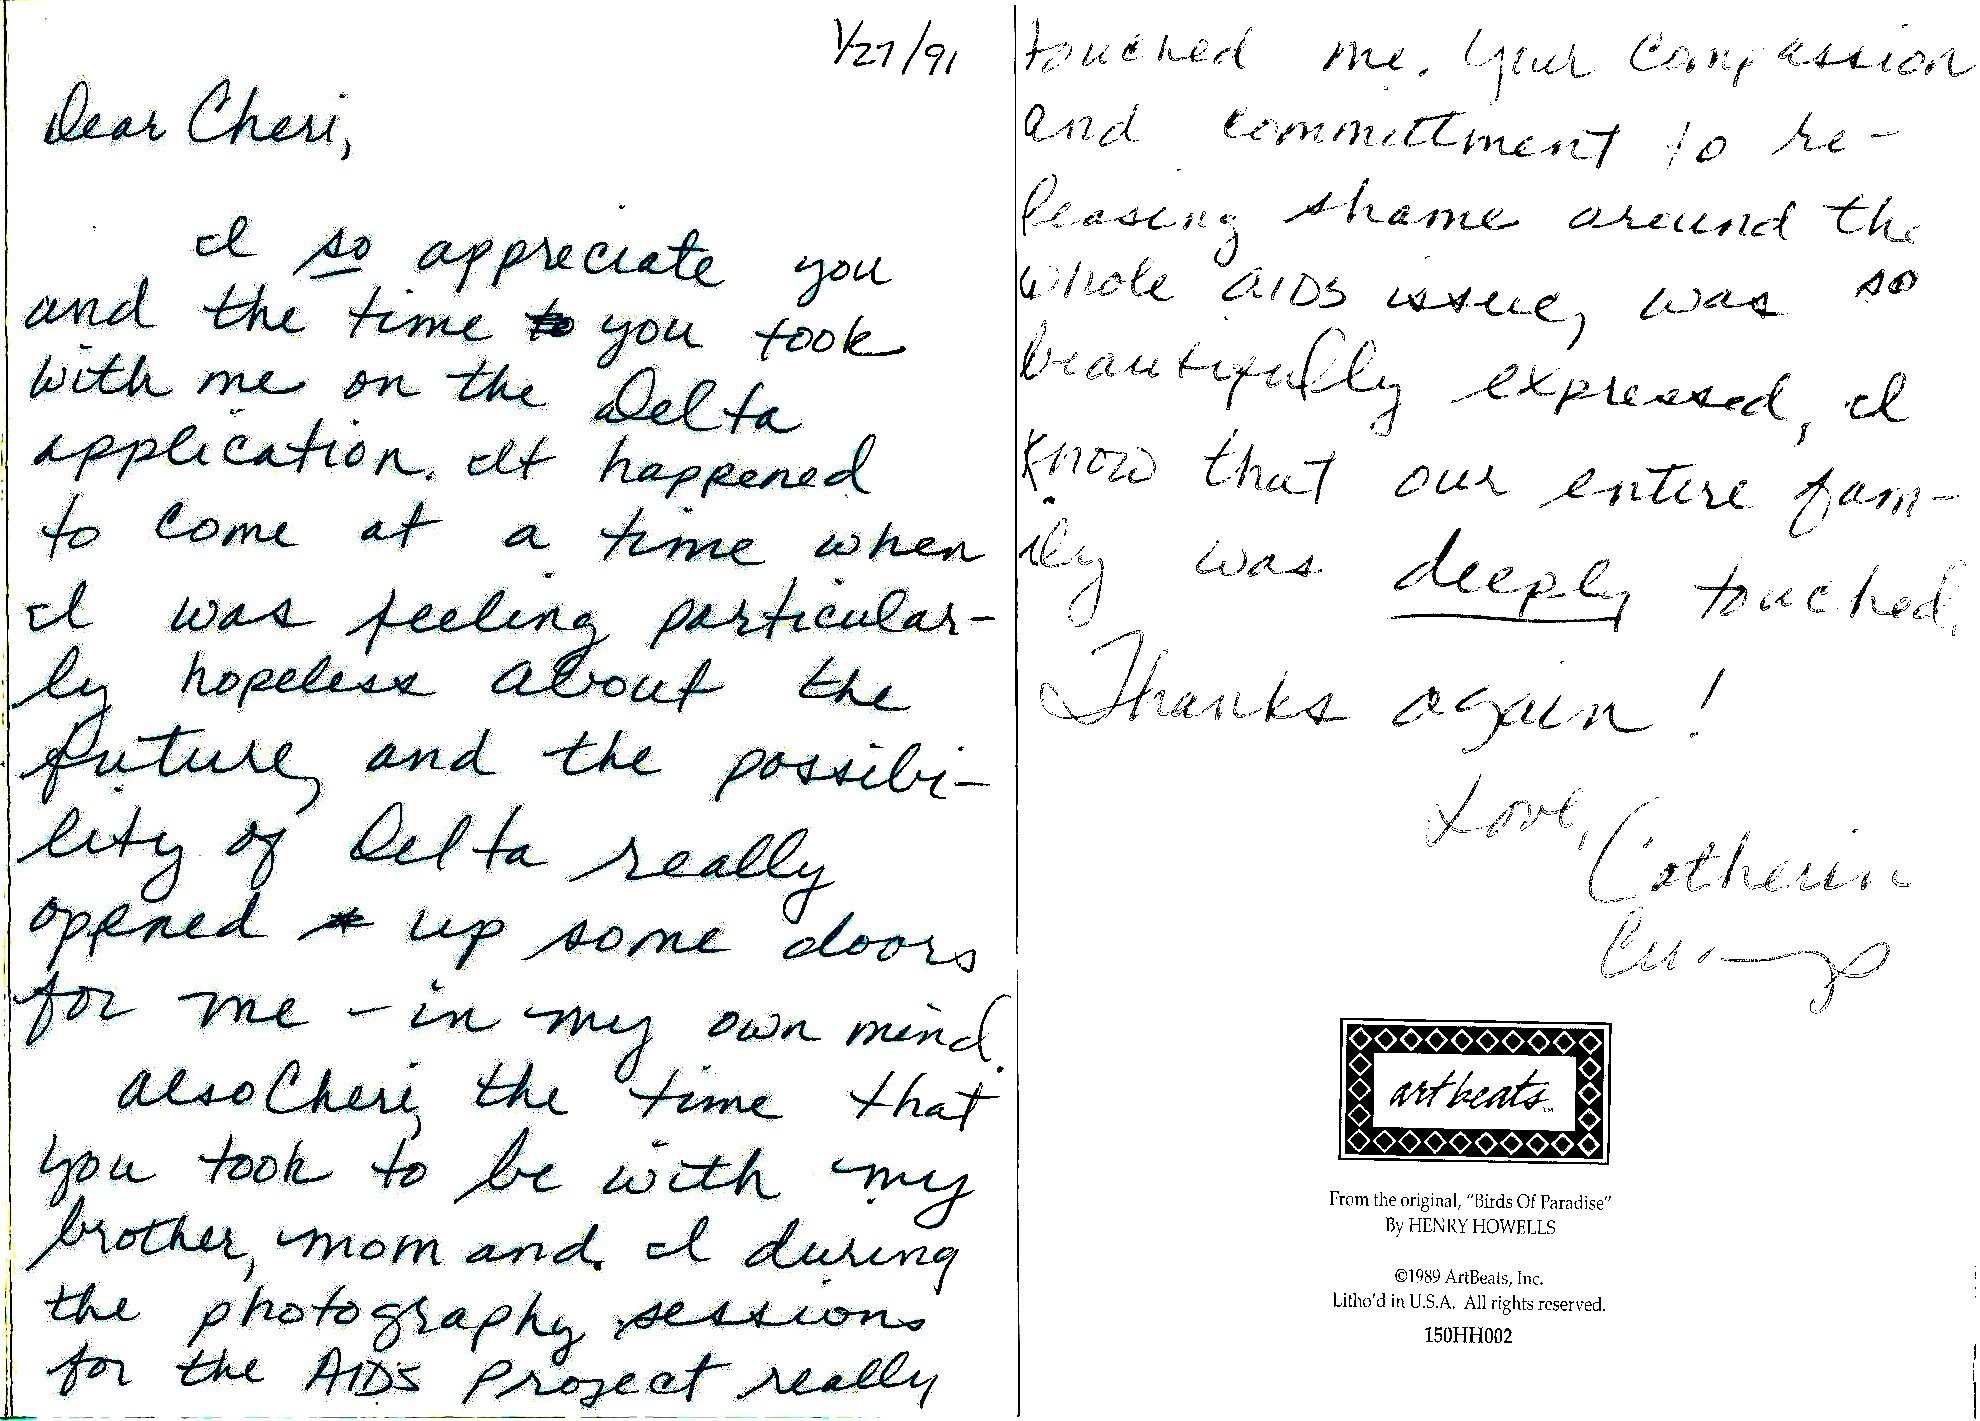 1/27/91
Dear Cheri,
I so appreciate you
and the time you took
with me on the Delta
application. It happened
to come at a time when
I was feeling particular-
ly hopeless about the
future, and the possibi-
lity of Delta really
opened up some doors
for me - in my own mind.
Also Cheri, the time that
you took to be with my
brother, mom and I during
the photography sessions
for the AIDS Project really
touched me. Your compassion
and committment to re-
leasing shame around the
whole AIDS issue, was so
beautifully expressed, I
know that our entire fam-
ily was deeply touched.
Thanks again!
Love,
Catherin
artbeats™
From the original, "Birds Of Paradise"
By HENRY HOWELLS
©1989 ArtBeats, Inc.
Litho'd in U.S.A. All rights reserved.
150HH002